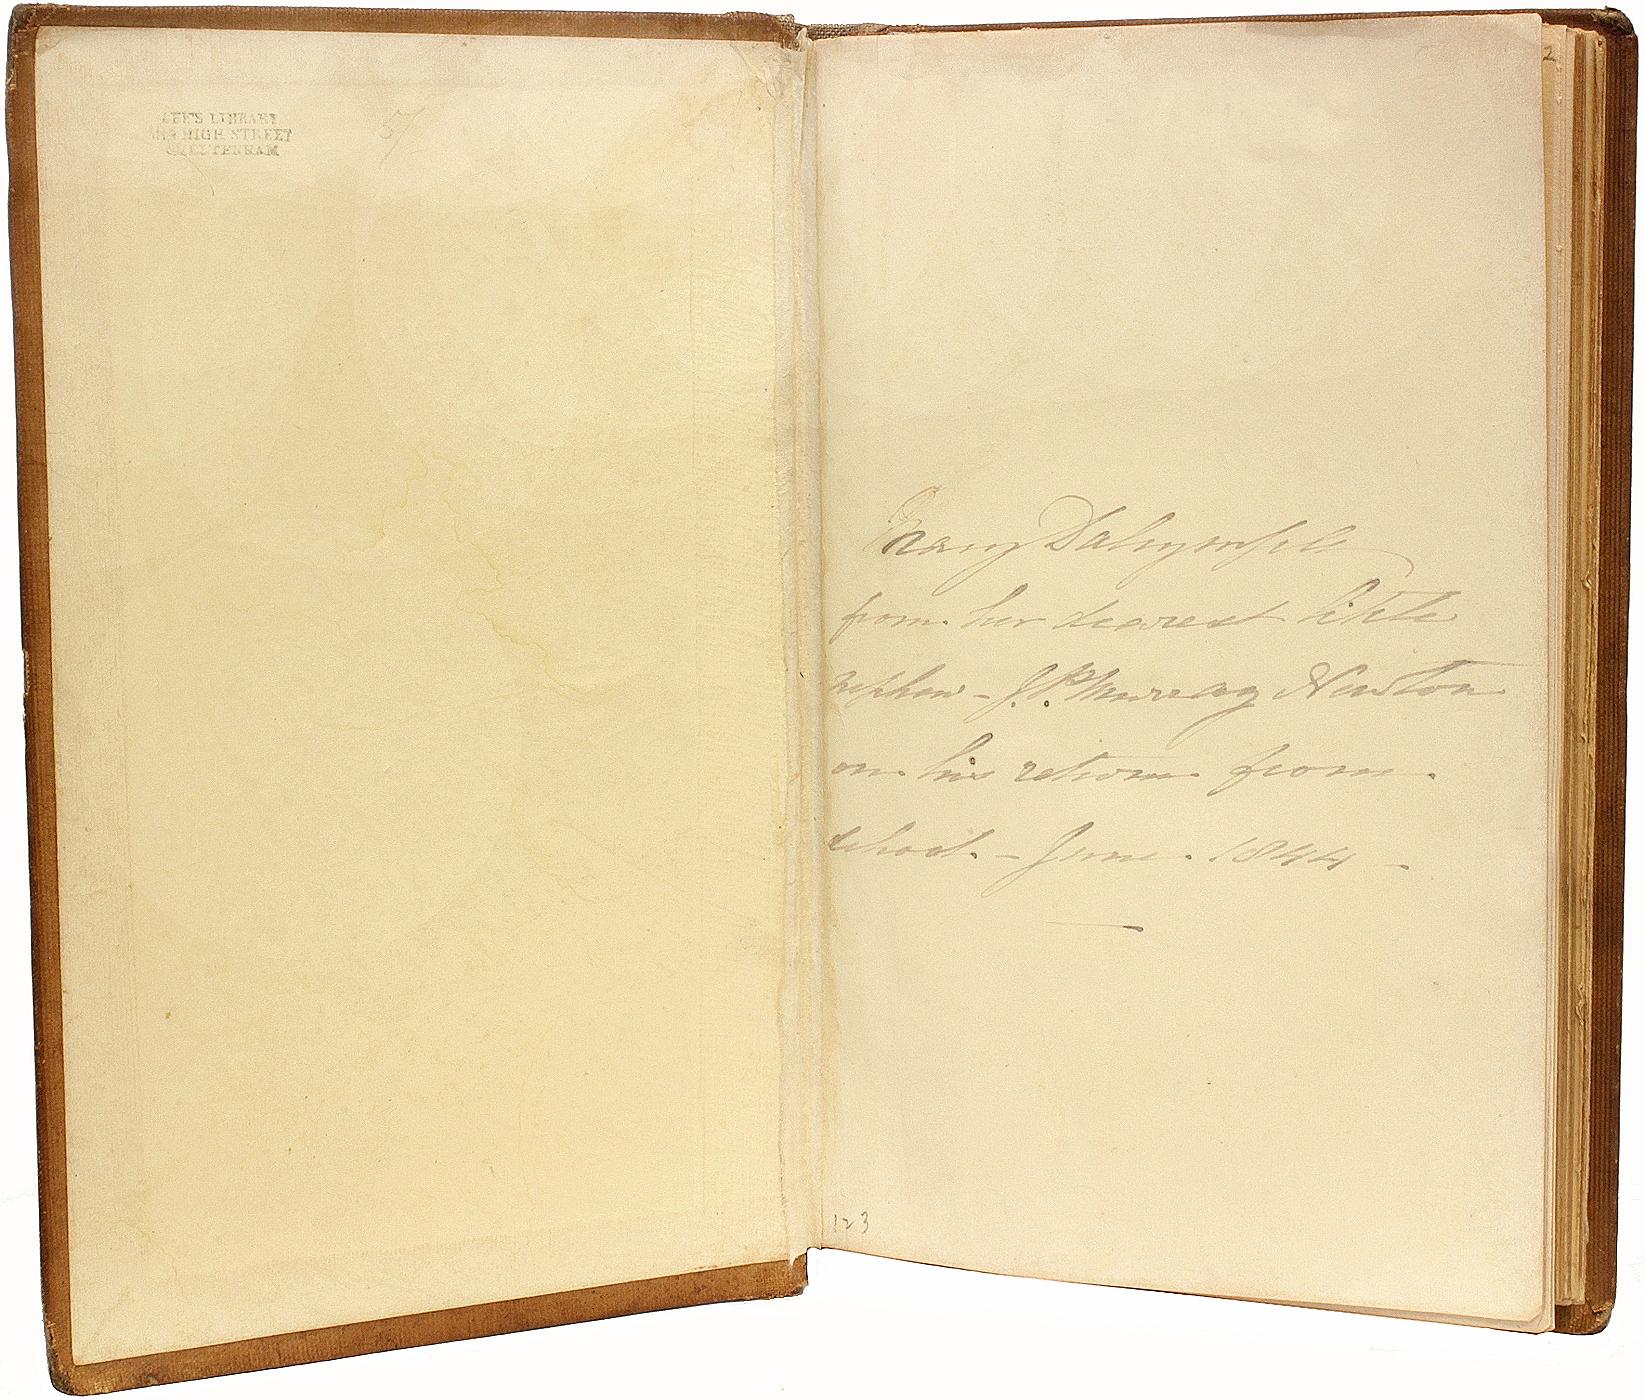 LEE'S LIBRARY
HIGH STREET
CHELTENHAM
5/
2
Mary Dalrymple
from her dearest little
nephew - J.P. Murray Newton
on his return from
school. - June. 1844 -
123